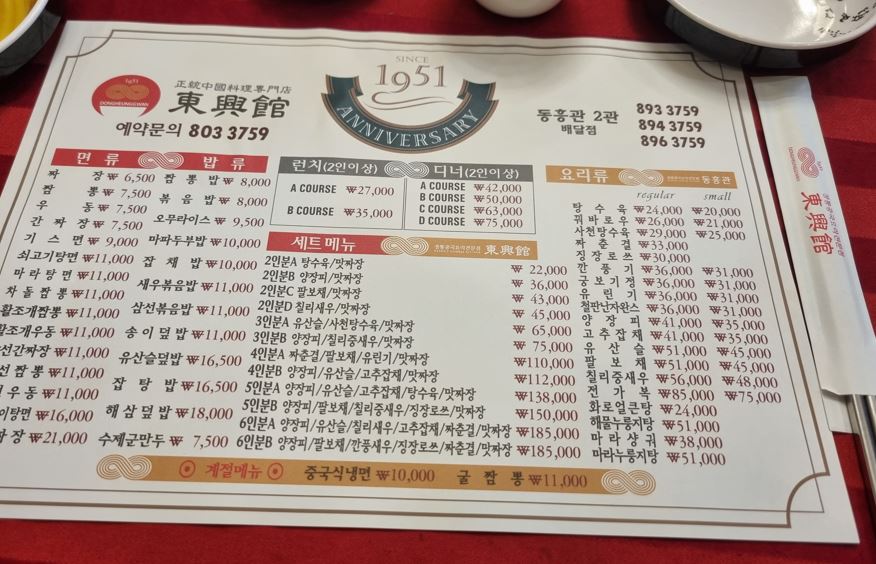 SINCE
1951
ANNIVERSARY
1951
DONGHEUNGGWAN
正統中國料理專門店
東興館
예약문의 803 3759
동흥관 2관 893 3759
배달점 894 3759
896 3759
면류 밥류
짜 장 ₩6,500 짬 뽕 밥 ₩8,000
짬 뽕 ₩7,500 볶 음 밥 ₩8,000
우 동 ₩7,500 오무라이스 ₩9,500
간 짜 장 ₩7,500 마파두부밥 ₩10,000
기 스 면 ₩9,000 잡 채 밥 ₩10,000
쇠고기탕면 ₩11,000 새우볶음밥 ₩11,000
마 라 탕 면 ₩11,000 삼선볶음밥 ₩11,000
차 돌 짬 뽕 ₩11,000 송 이 덮 밥 ₩11,000
활조개짬뽕 ₩11,000 유산슬덮밥 ₩16,500
활조개우동 ₩11,000 잡 탕 밥 ₩16,500
선간짜장 ₩11,000 해 삼 덮 밥 ₩18,000
선 짬 뽕 ₩11,000 수제군만두 ₩7,500
우 동 ₩11,000
이탕면 ₩16,000
짜 장 ₩21,000
런치(2인이상) 디너(2인이상)
A COURSE ₩27,000
B COURSE ₩35,000
A COURSE ₩42,000
B COURSE ₩50,000
C COURSE ₩63,000
D COURSE ₩75,000
세트메뉴 東興館
2인분A 탕수육/맛짜장 ₩22,000
2인분B 양장피/맛짜장 ₩36,000
2인분C 팔보채/맛짜장 ₩43,000
2인분D 칠리새우/맛짜장 ₩45,000
3인분A 유산슬/사천탕수육/맛짜장 ₩65,000
3인분B 양장피/칠리중새우/맛짜장 ₩75,000
4인분A 짜춘걸/팔보채/유린기/맛짜장 ₩110,000
4인분B 양장피/유산슬/고추잡채/맛짜장 ₩112,000
5인분A 양장피/유산슬/고추잡채/탕수육/맛짜장 ₩138,000
5인분B 양장피/팔보채/칠리중새우/징장로쓰/맛짜장 ₩150,000
6인분A 양장피/유산슬/칠리중새우/고추잡채/짜춘걸/맛짜장 ₩185,000
6인분B 양장피/팔보채/깐풍새우/징장로쓰/짜춘걸/맛짜장 ₩185,000
요리류 동흥관
regular small
탕 수 육 ₩24,000 ₩20,000
꿔바로우 ₩26,000 ₩21,000
사천탕수육 ₩29,000 ₩25,000
짜 춘 걸 ₩33,000
징장로쓰 ₩30,000
깐 풍 기 ₩36,000 ₩31,000
궁 보 기 정 ₩36,000 ₩31,000
유 린 기 ₩36,000 ₩31,000
철판난자완스 ₩36,000 ₩31,000
양 장 피 ₩41,000 ₩35,000
고 추 잡 채 ₩41,000 ₩35,000
유 산 슬 ₩51,000 ₩45,000
팔 보 채 ₩51,000 ₩45,000
칠리중새우 ₩56,000 ₩48,000
전 가 복 ₩85,000 ₩75,000
화로얼큰탕 ₩24,000
해물누룽지탕 ₩51,000
마 라 샹 궈 ₩38,000
마라누룽지탕 ₩51,000
계절메뉴 중국식냉면 ₩10,000 굴 짬 뽕 ₩11,000
東興館